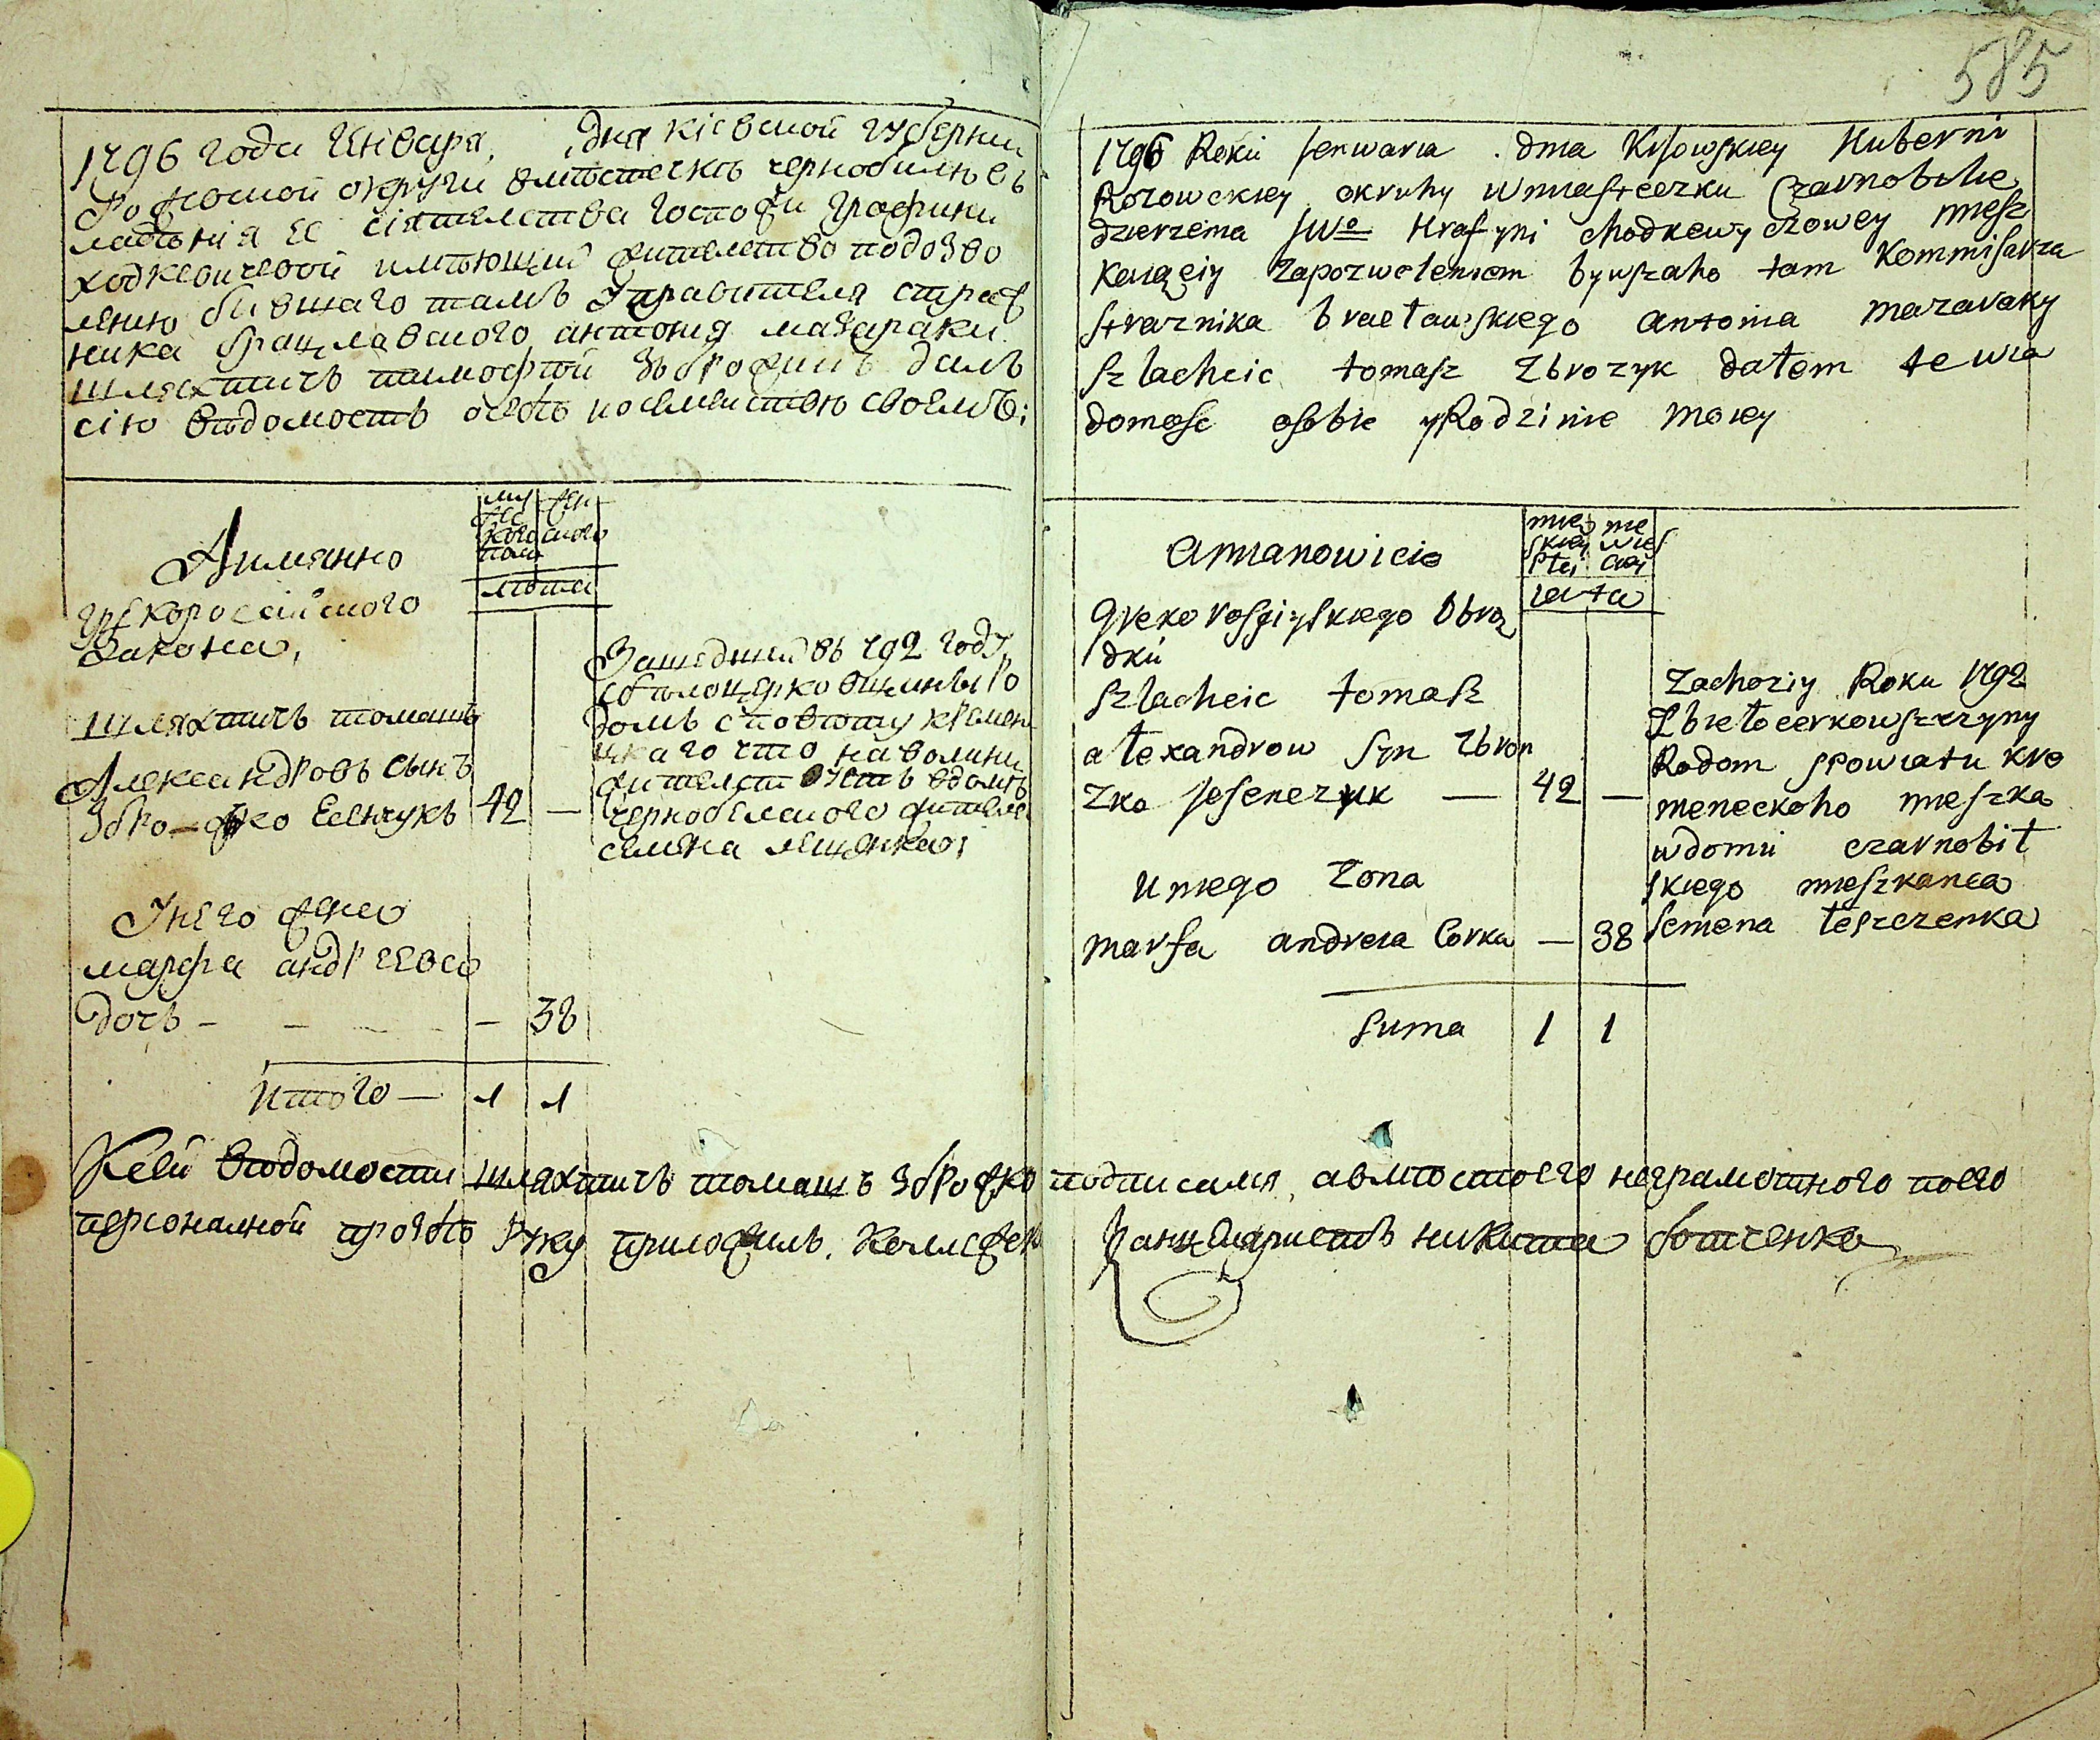 585
1796 года Генваря, дня Кіевской губерни
Рожовской округи вмѣстечкѣ чернобилѣ въ
ладѣнія Ее сіятелства госпожи графини
ходкевичевой имѣющий жителство подозво
лению бившаго тамъ Управителя страж
ника брацлавского антония мазараки
шляхтичъ тимофей Зброжикъ далъ
сію вѣдомость осебѣ иосемействѣ своемъ:
Аимянно
муж жен
ско ского
пола
лѣта
грекоросси́йского
Закона,
шляхтичъ томашъ
Александровъ сынъ
Збро—жко Есенчукъ 42 —
Зашедший въ 792 году
збѣлоцерковщины Ро
домъ сповѣту кремен
цкаго что наволини
жителст вуетъ вдомѣ
чернобелского жителя
семена лещенка;
Унего жена
марфа андреева
дочь — — — — — 38
итого — 1 1
1796 Roku Jenwaria . dnia Kijowskiey Huberni
Rozowskiey okruhy Wmiasteczku Czarnobilu
dzierzenia JWo Hrafyni chodkewyczowey miesz
kaiąciy Zapozwoleniem bywszaho tam Kommisarza
strażnika bracławskiego antonia mazaraky
szlachcic tomasz Zbrozyk dałem te wia
domosc osobie yRodzinie moiey
amianowicie
męs nie
skiey wies
płci ciey
lata
greko rossiyskiego Obrzą
dku
szlachcic tomasz
alexandrow syn Zbroz
zko Jesenczuk — 42 —
Zachoziy Roku 1792
Zbiełocerkowszczyny
Rodom spowiatu kre
meneckoho mieszka
wdomu czarnobil
skiego mieszkanca
semena łeszczenka
uniego żona
marfa andreia Corka — 38
suma 1 1
Ксей вѣдомости шляхтичъ томашъ Зброжко подписался, авмѣстоего неграмотного поего
персоналной прозбѣ руку приложилъ. Колежски Канцеляристъ никита ботченко